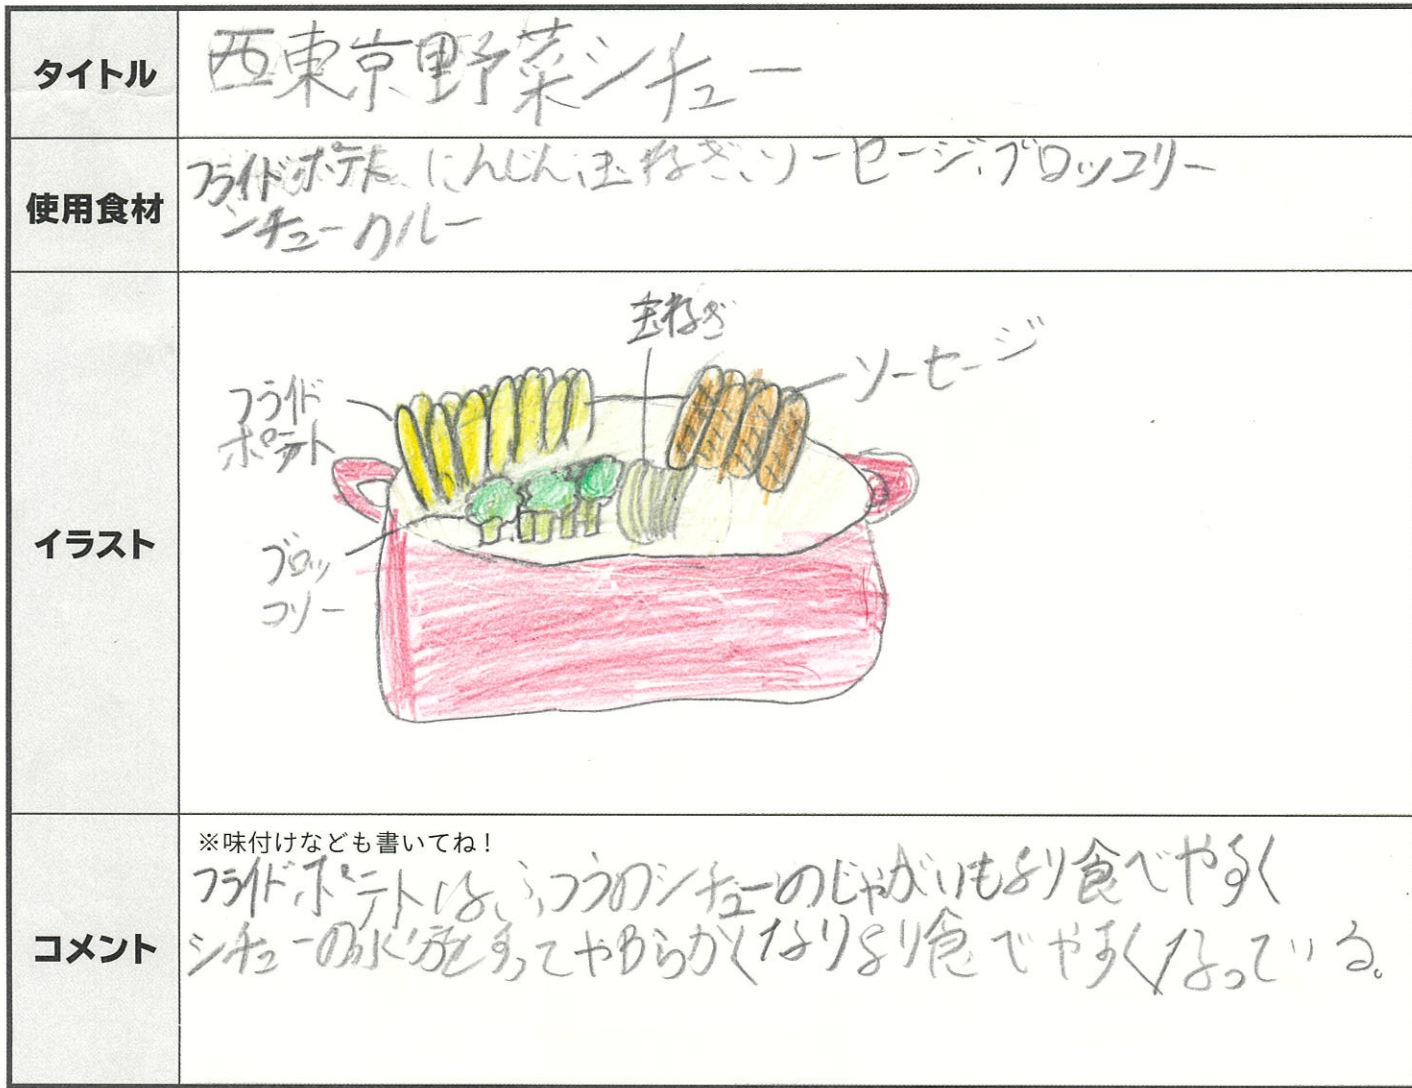 タイトル
西東京野菜シチュー
使用食材
フライドポテト、にんじん、玉ねぎ、ソーセージ、ブロッコリー
シチューのルー
イラスト
玉ねぎ
ソーセージ
フライド
ポテト
ブロッ
コリー
コメント
※味付けなども書いてね!
フライドポテトは、ふつうのシチューのじゃがいもより食べやすく
シチューの水分をすってやわらかくなりより食べやすくなっている。